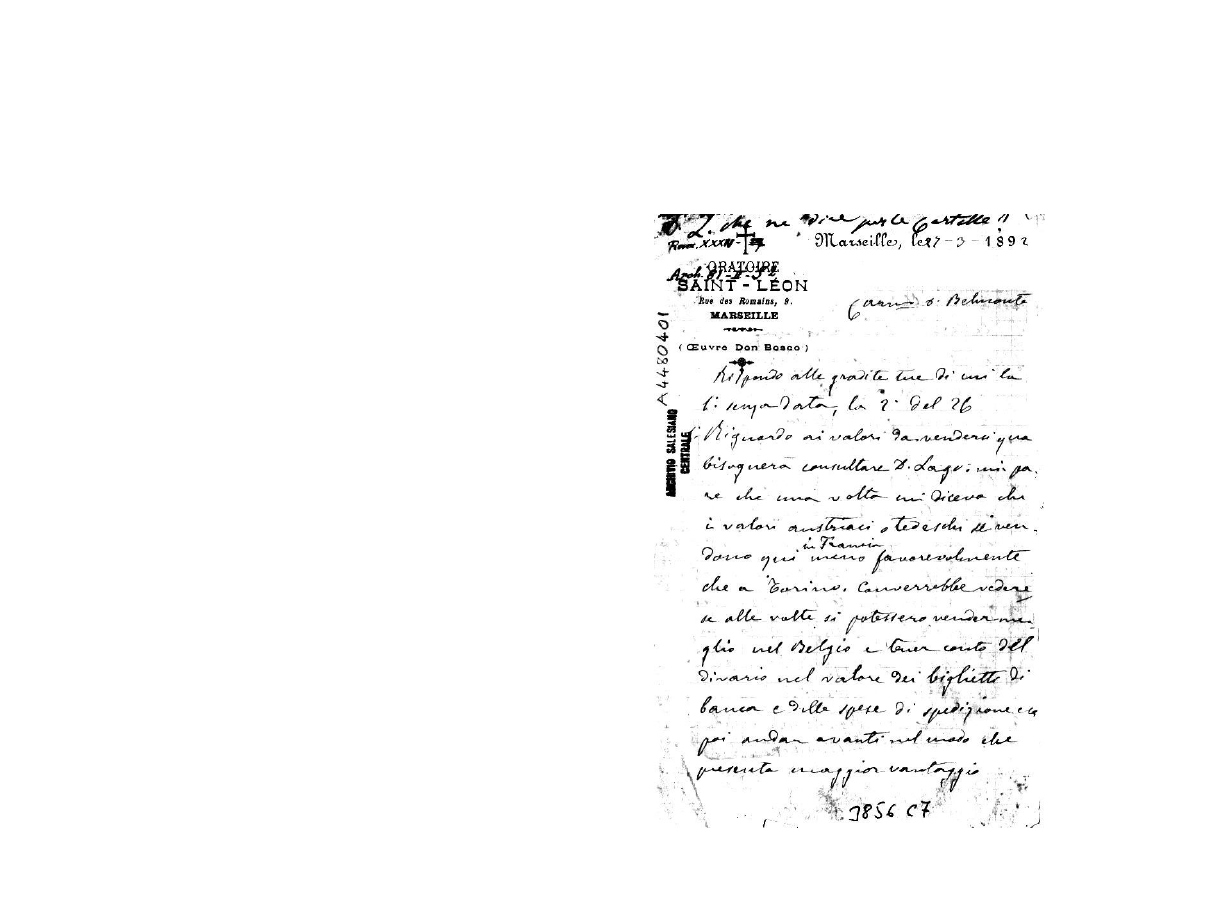 D. L. che ne dice per le Cartelle !!
Marseille, le 27-3-1892
ORATOIRE
SAINT-LÉON
Rue des Romains, 9.
MARSEILLE
(Œuvre Don Bosco)
A4480401
ARCHIVIO SALESIANO
CENTRALE
Carmo D. Belmonte
Rispondo alle gradite tue di cui la
1ª senza data, la 2ª del 26
1º Riguardo ai valori da vendersi qua
bisognerà consultare D. Lago: mi pa-
re che una volta mi diceva che
i valori austriaci o tedeschi si ven-
dono qui in Francia meno favorevolmente
che a Torino. Converrebbe vedere
se alle volte si potessero vender me-
glio nel Belgio e tener conto del
divario nel valore dei biglietti di
banca e delle spese di spedizione e
poi andar avanti nel modo che
presenta maggior vantaggio
3856 C7